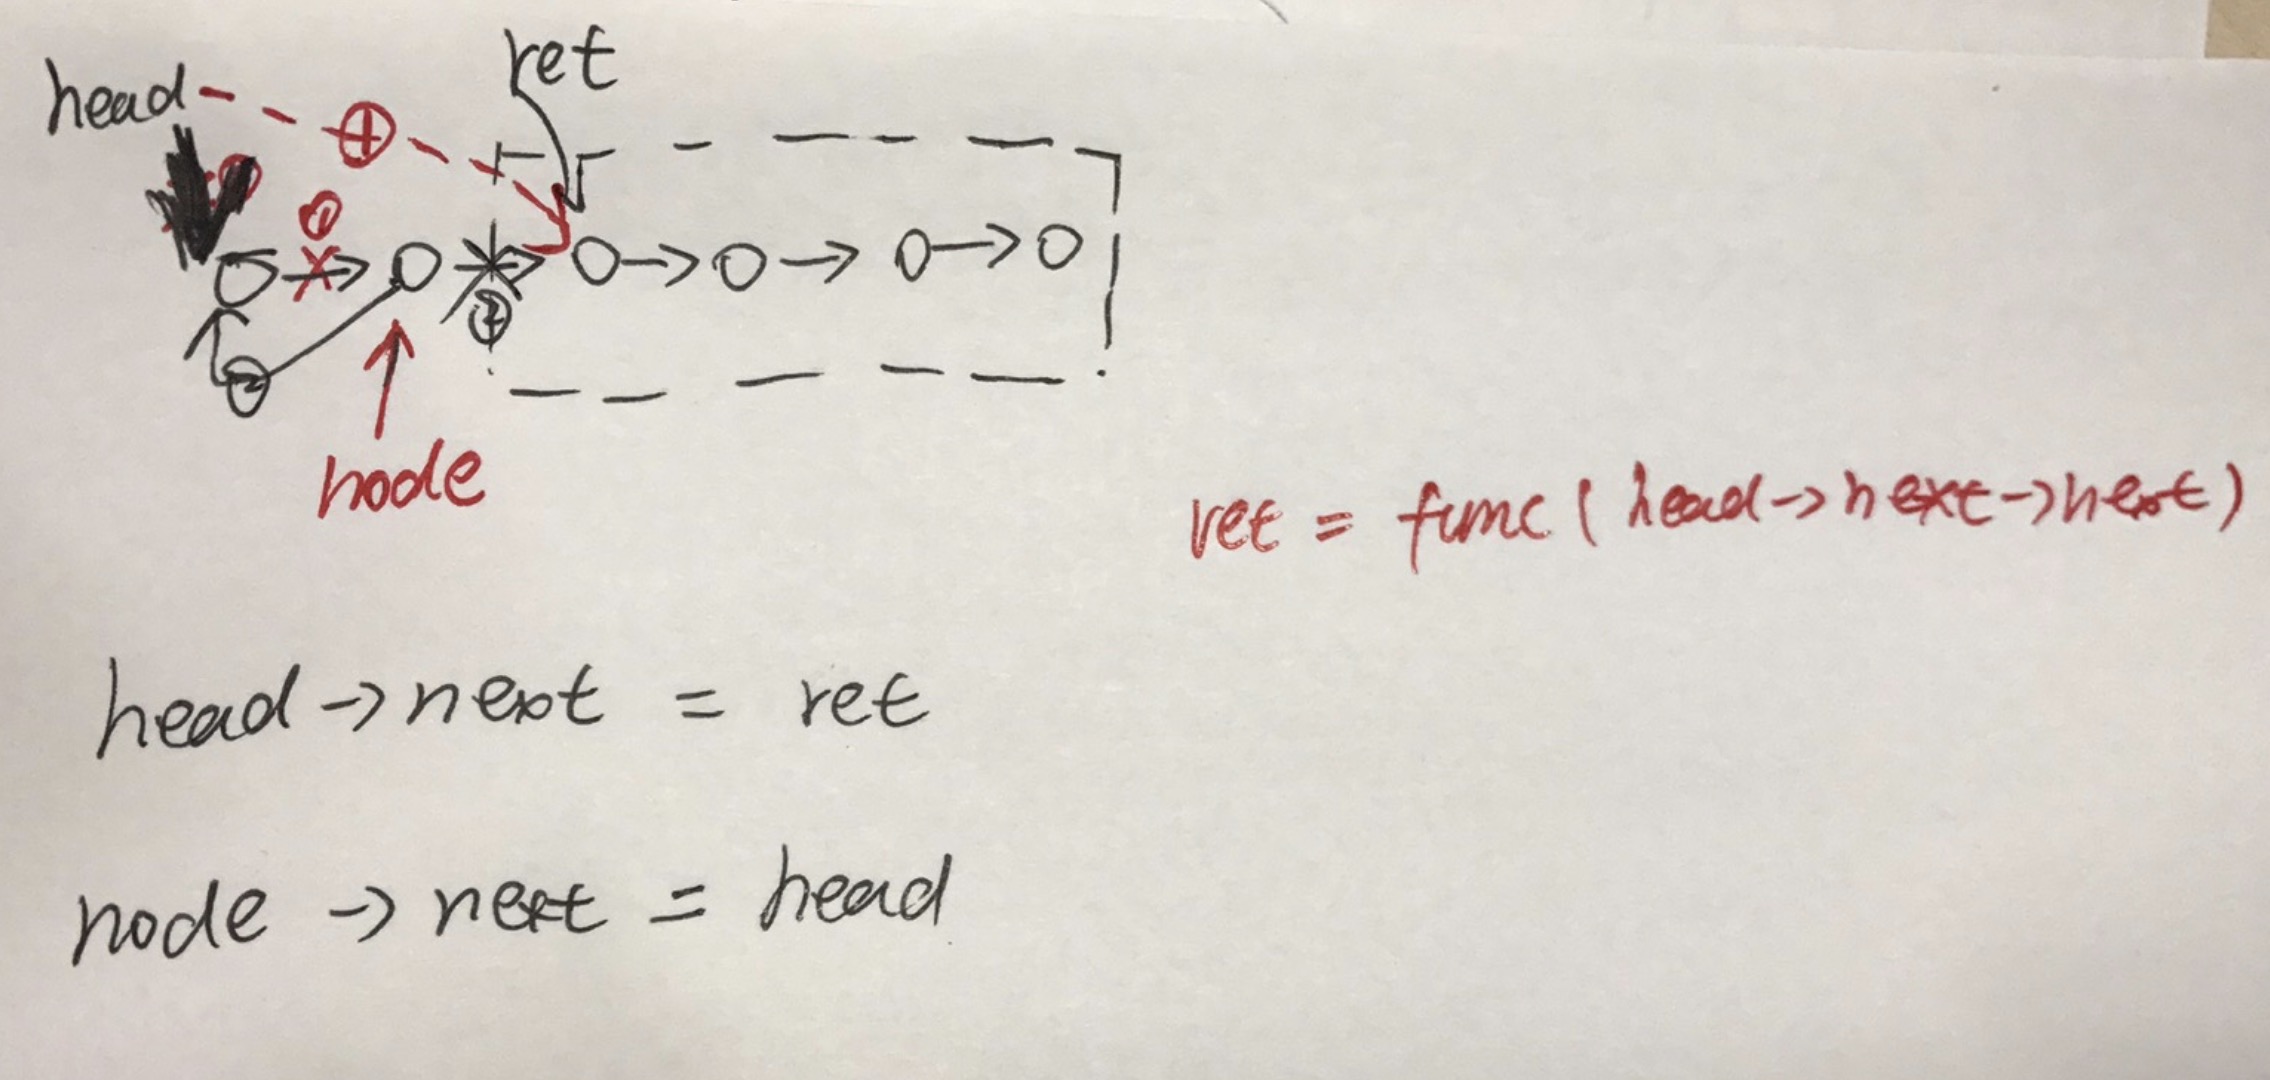 ret
head
node
ret = func ( head->next->next )
head -> next = ret
node -> next = head